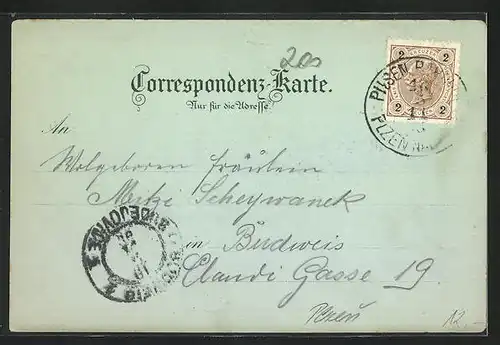 200
Correspondenz-Karte.
Nur für die Adresse.
2 2
2 2
PILSEN
PLZEŇ
An
Wolgeboren Fräulein
Mitzi Scheywanek
in Budweis
Claudi Gasse 19
BUDĚJOVICE
2
12,-